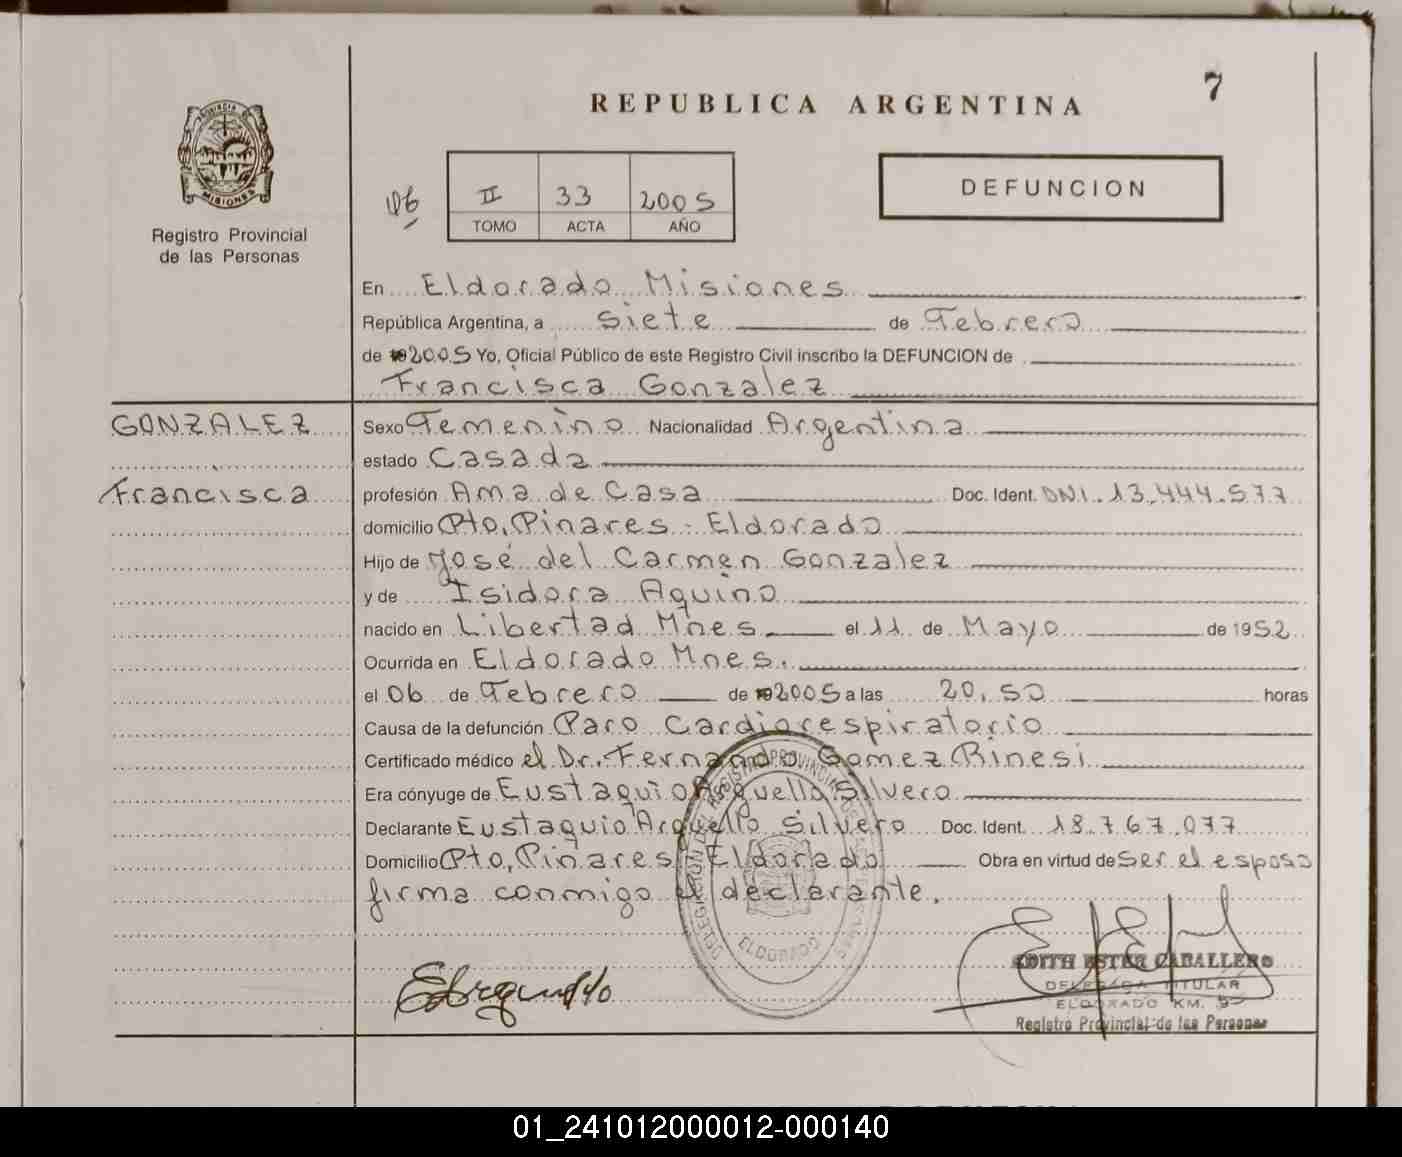 7
REPUBLICA ARGENTINA
PROVINCIA DE
MISIONES
Registro Provincial
de las Personas
II 33 2005
TOMO ACTA AÑO
DEFUNCION
En Eldorado Misiones
República Argentina, a siete de Febrero
de 2005 Yo, Oficial Público de este Registro Civil inscribo la DEFUNCION de
Francisca Gonzalez
GONZALEZ
Francisca
Sexo Femenino Nacionalidad Argentina
estado Casada
profesión Ama de Casa Doc. Ident. DNI. 13.444.577
domicilio Pto, Pinares - Eldorado
Hijo de José del Carmen Gonzalez
y de Isidora Aquino
nacido en Libertad Mnes el 11 de Mayo de 1952
Ocurrida en Eldorado Mnes.
el 06 de Febrero de 2005 a las 20,50 horas
Causa de la defunción Paro Cardiorespiratorio
Certificado médico el Dr. Fernando Gomez Rinesi
Era cónyuge de Eustaquio Arguello Silvero
Declarante Eustaquio Arguello Silvero Doc. Ident. 18.767.077
Domicilio Pto, Pinares Eldorado Obra en virtud de Ser el esposo
firma conmigo el declarante.
DELEGACION DEL REGISTRO PROVINCIAL DE LAS PERSONAS
ELDORADO
EDITH ESTER CABALLERO
DELEGADA TITULAR
ELDORADO KM. 9
Registro Provincial de las Personas
01_241012000012-000140